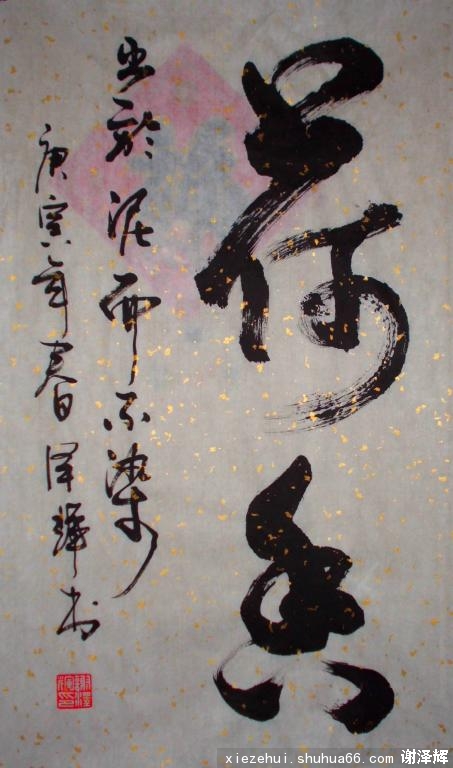 荷香
出於泥而不染
庚寅年春日泽辉书
xiezehui.shuhua66.com 谢泽辉